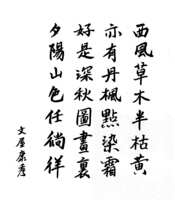 西風草木半枯黃
亦有丹楓點染霜
好是深秋圖畫裏
夕陽山色任徜徉
文屋康秀